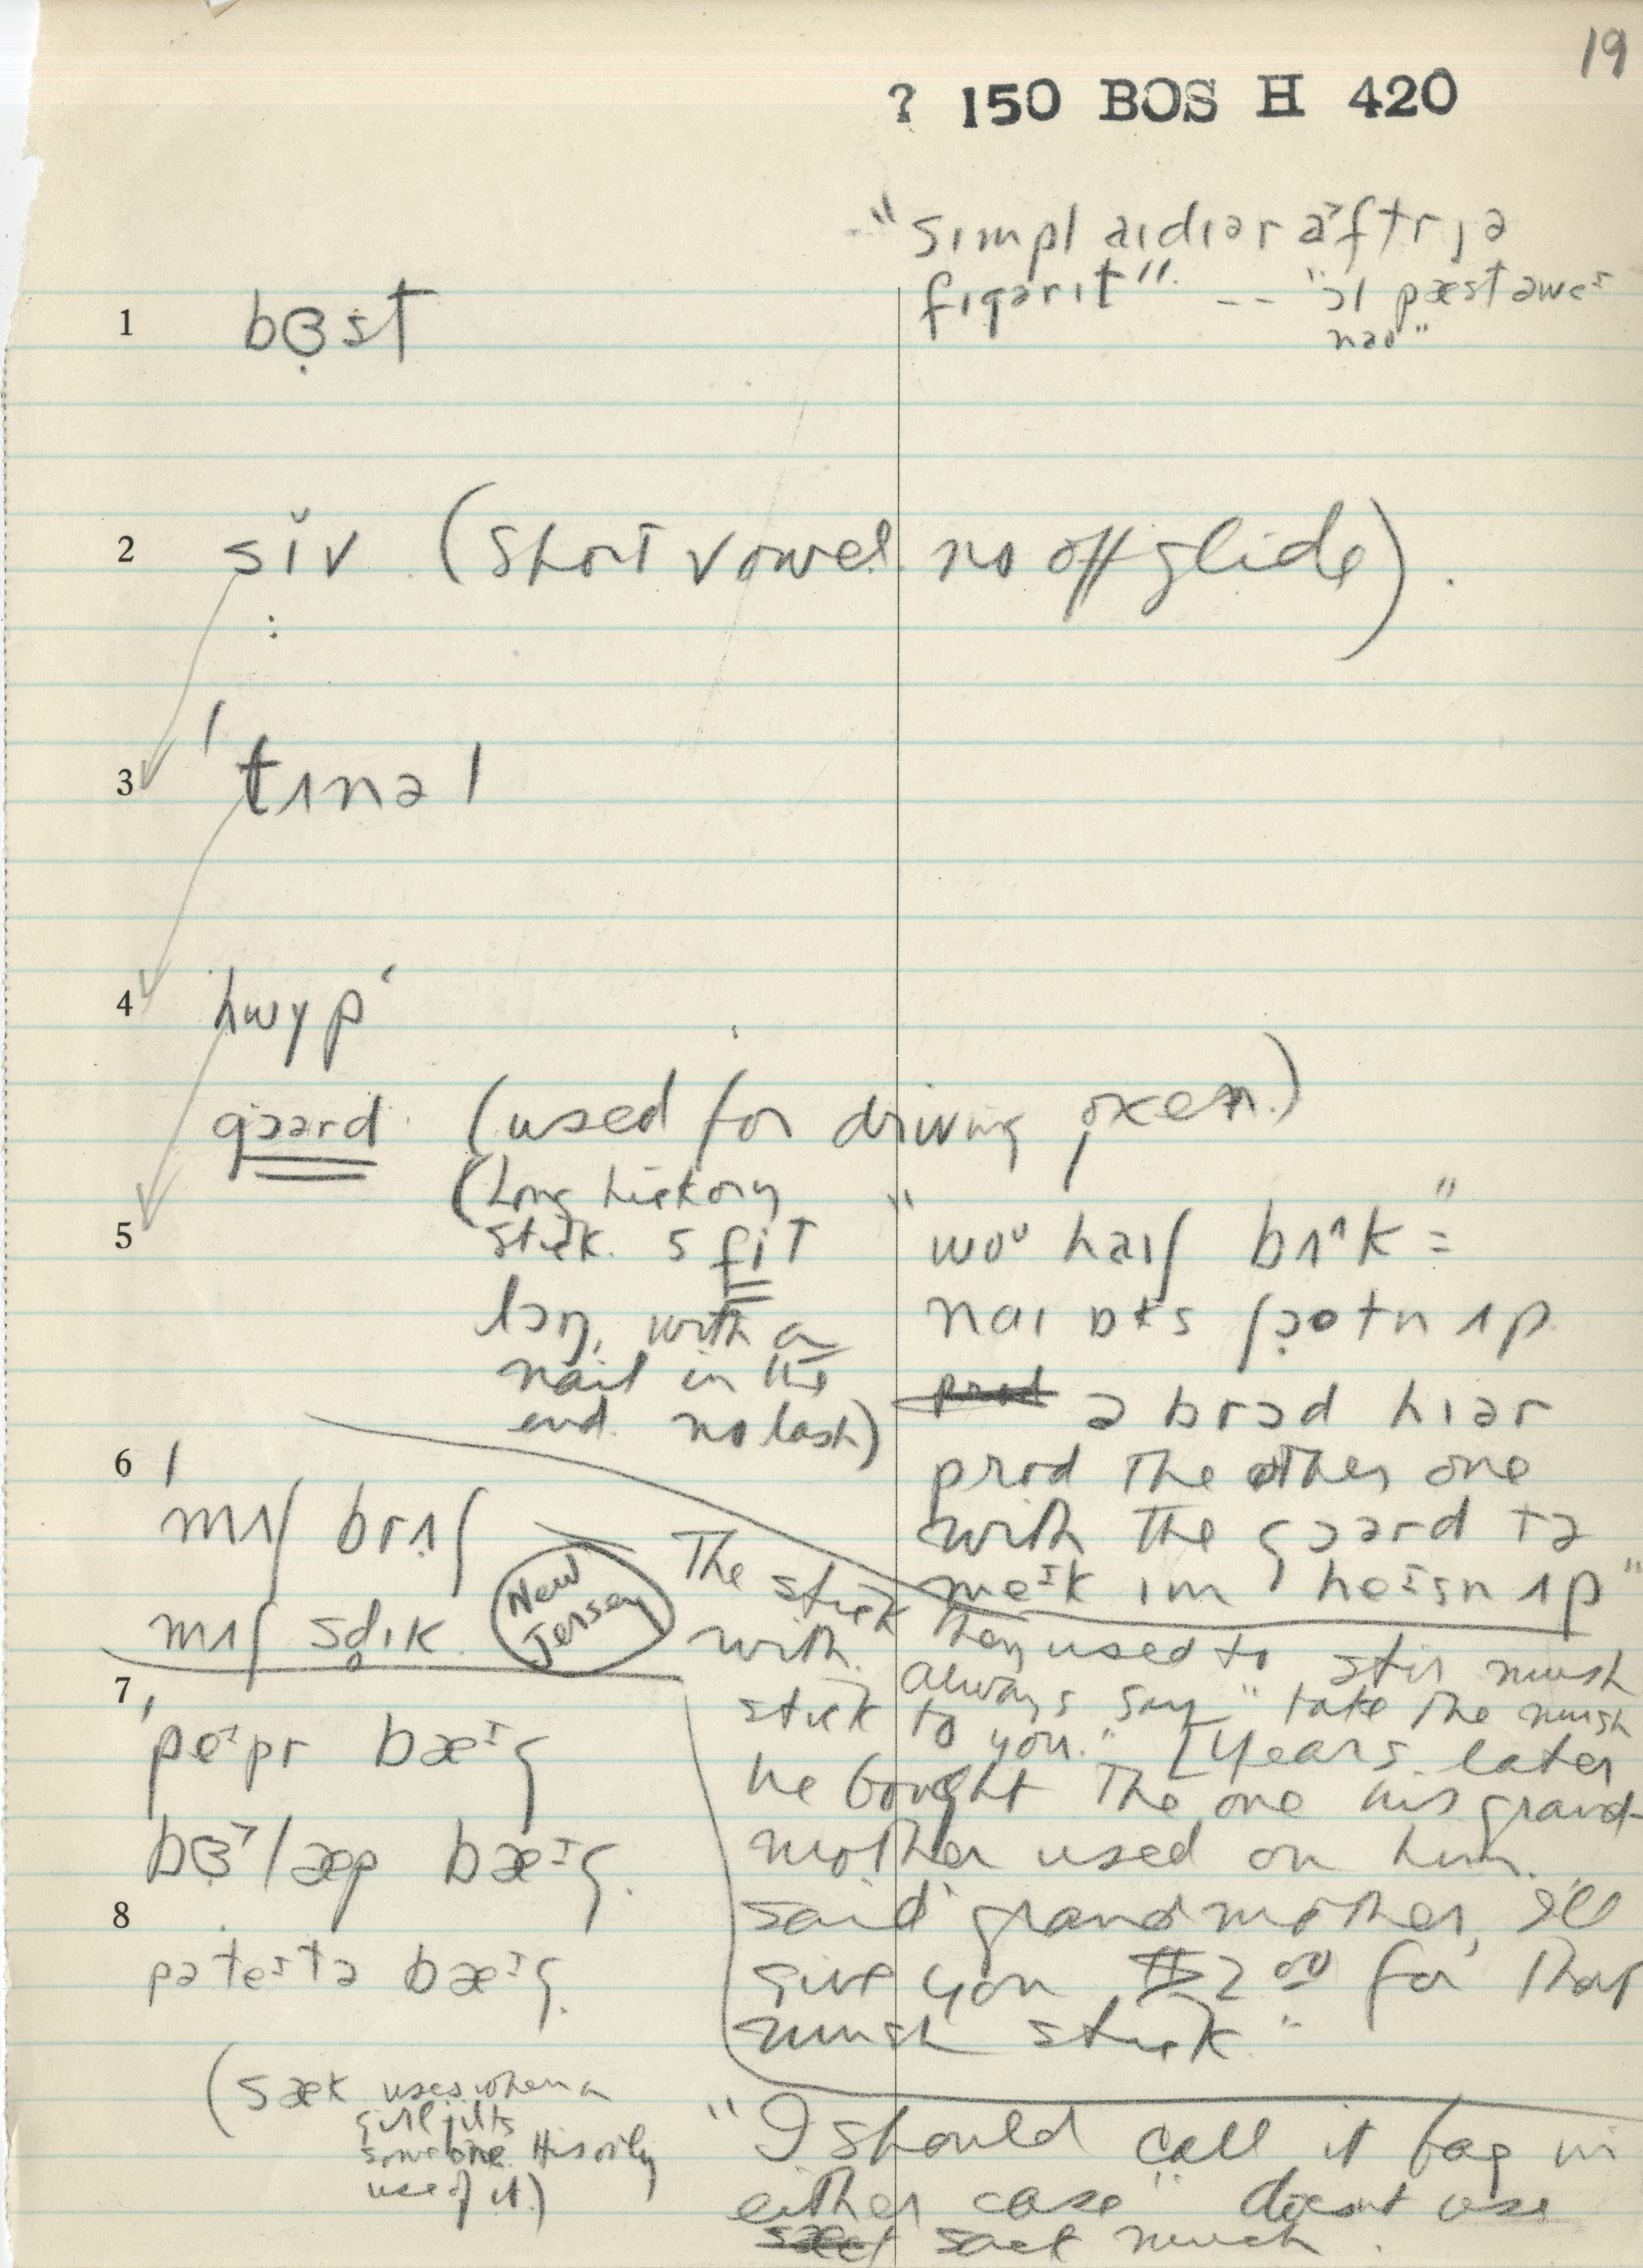 19
? 150 BOS H 420
"sɪmpl aɪdɪər a˃ftr jə
fɪgərɪt" -- "ɔl pæst əwe
naʊ"
1 bɞ̣st
2 sɪ̌v (short vowel no off glide).
3 'tʌnəl
4 hwyp'
gɔərd (used for driving oxen)
(Long hickory
stick. 5 fit
lɔŋ, with a
nail in the
end. no lash)
5 "woᶷ haɪʃ brʌk ="
naɪ ʃə̣ʊtn ʌp
ə brɔd hɪər
prod the other one
with the gɔərd tə
meᶦk ɪm heᶦsn ʌp"
6 'mʌʃ brʌʃ
mʌʃ sdɪk
New
Jersey
The stick they used to stir mush
with. always say "take the mush
stick to you." [Years later
he bought the one his grand-
mother used on him.
said grandmother, I'll
give you $2 00 for that
mush stick."
7 'peᶦpr bæᶦg
bɞ̣˃læp bæᶦg.
8 pəteᶦtə bæᶦg.
(sæk uses when a
girl jilts
someone. His only
use of it.)
"I should call it bag in
either case" doesnt use
sack much.